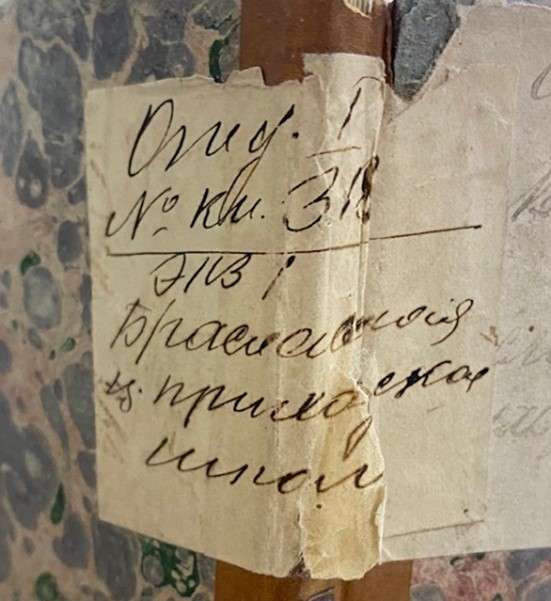 Отд. I
№ кн. 318
экз 1
Браславская
ц. приходская
школ